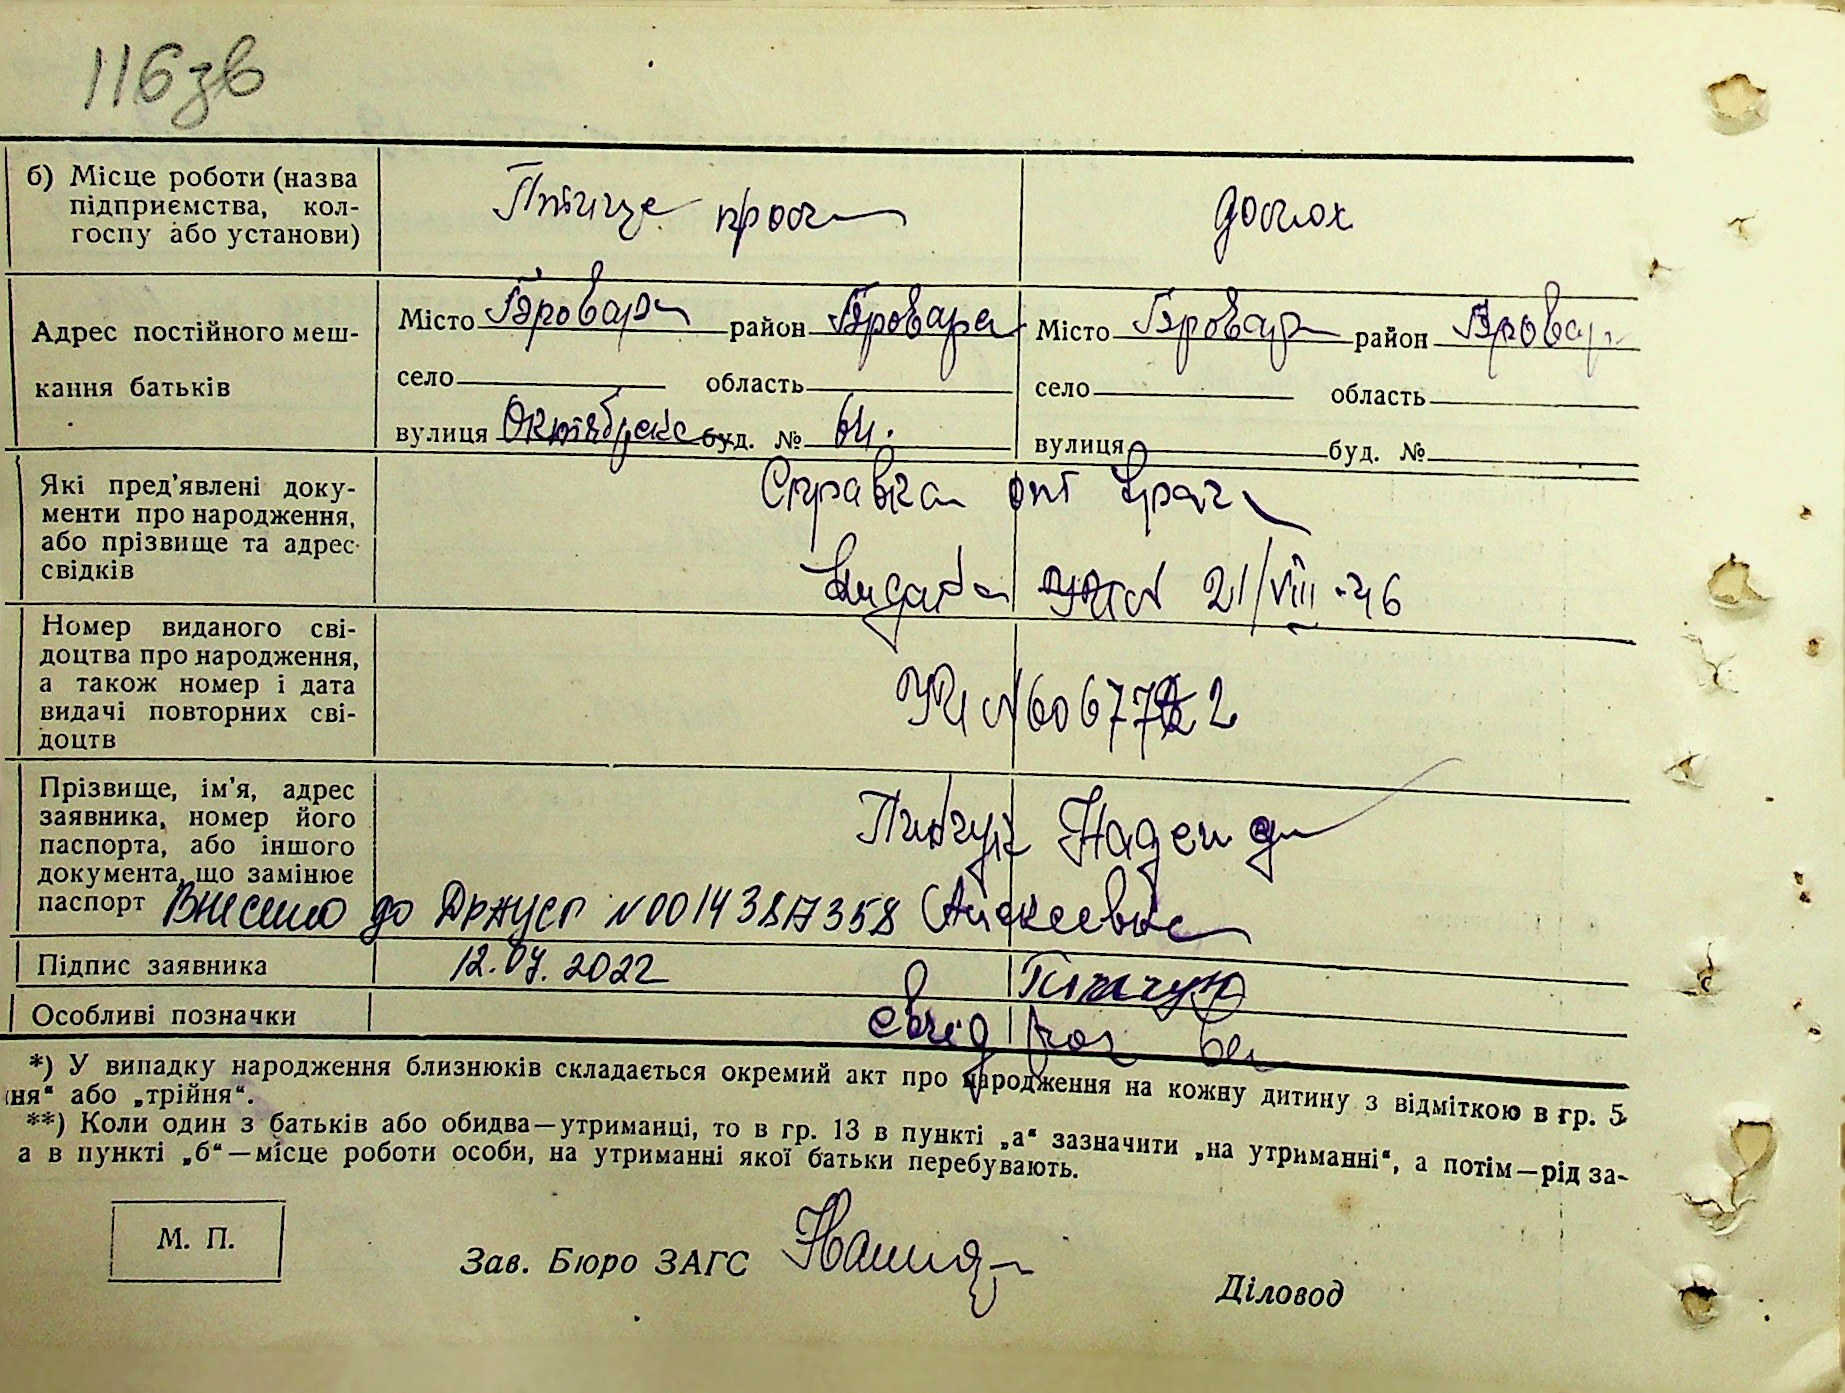 116зв
б) Місце роботи (назва
підприємства, кол-
госпу або установи)
Птице
Адрес постійного меш-
кання батьків
Місто Бровари район Бровара
село область
вулиця Октябрска буд. № 64.
Місто Бровар район Бровар
село область
вулиця буд. №
Які пред'явлені доку-
менти про народження,
або прізвище та адрес
свідків
Справка от врача
21/VIII-46
Номер виданого сві-
доцтва про народження,
а також номер і дата
видачі повторних сві-
доцтв
Прізвище, ім'я, адрес
заявника, номер його
паспорта, або іншого
документа, що замінює
паспорт
Надежда
Алексеевна
Внесено до ДРАЦСГ №00143817358
Підпис заявника
12.07.2022
Особливі позначки
*) У випадку народження близнюків складається окремий акт про народження на кожну дитину з відміткою в гр. 5
ня" або „трійня".
**) Коли один з батьків або обидва—утриманці, то в гр. 13 в пункті „а" зазначити „на утриманні", а потім—рід за-
а в пункті „б"—місце роботи особи, на утриманні якої батьки перебувають.
М. П.
Зав. Бюро ЗАГС
Діловод